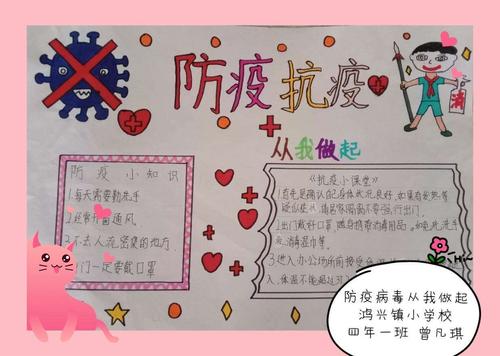 防疫抗疫
从我做起
消
防疫小知识
1.每天需要勤洗手
2.经常开窗通风
3.不去人流密集的地方
门一定要戴口罩
《抗疫小课堂》
1.首先是确认自身体状况良好,如果有发热等
1.出门戴好口罩,随身携带消毒用品,如免洗洗手
液、消毒湿巾等。
3.进入办公场所前接受
入,体温不能超过37
Hi~
防疫病毒从我做起
鸿兴镇小学校
四年一班 曾凡琪